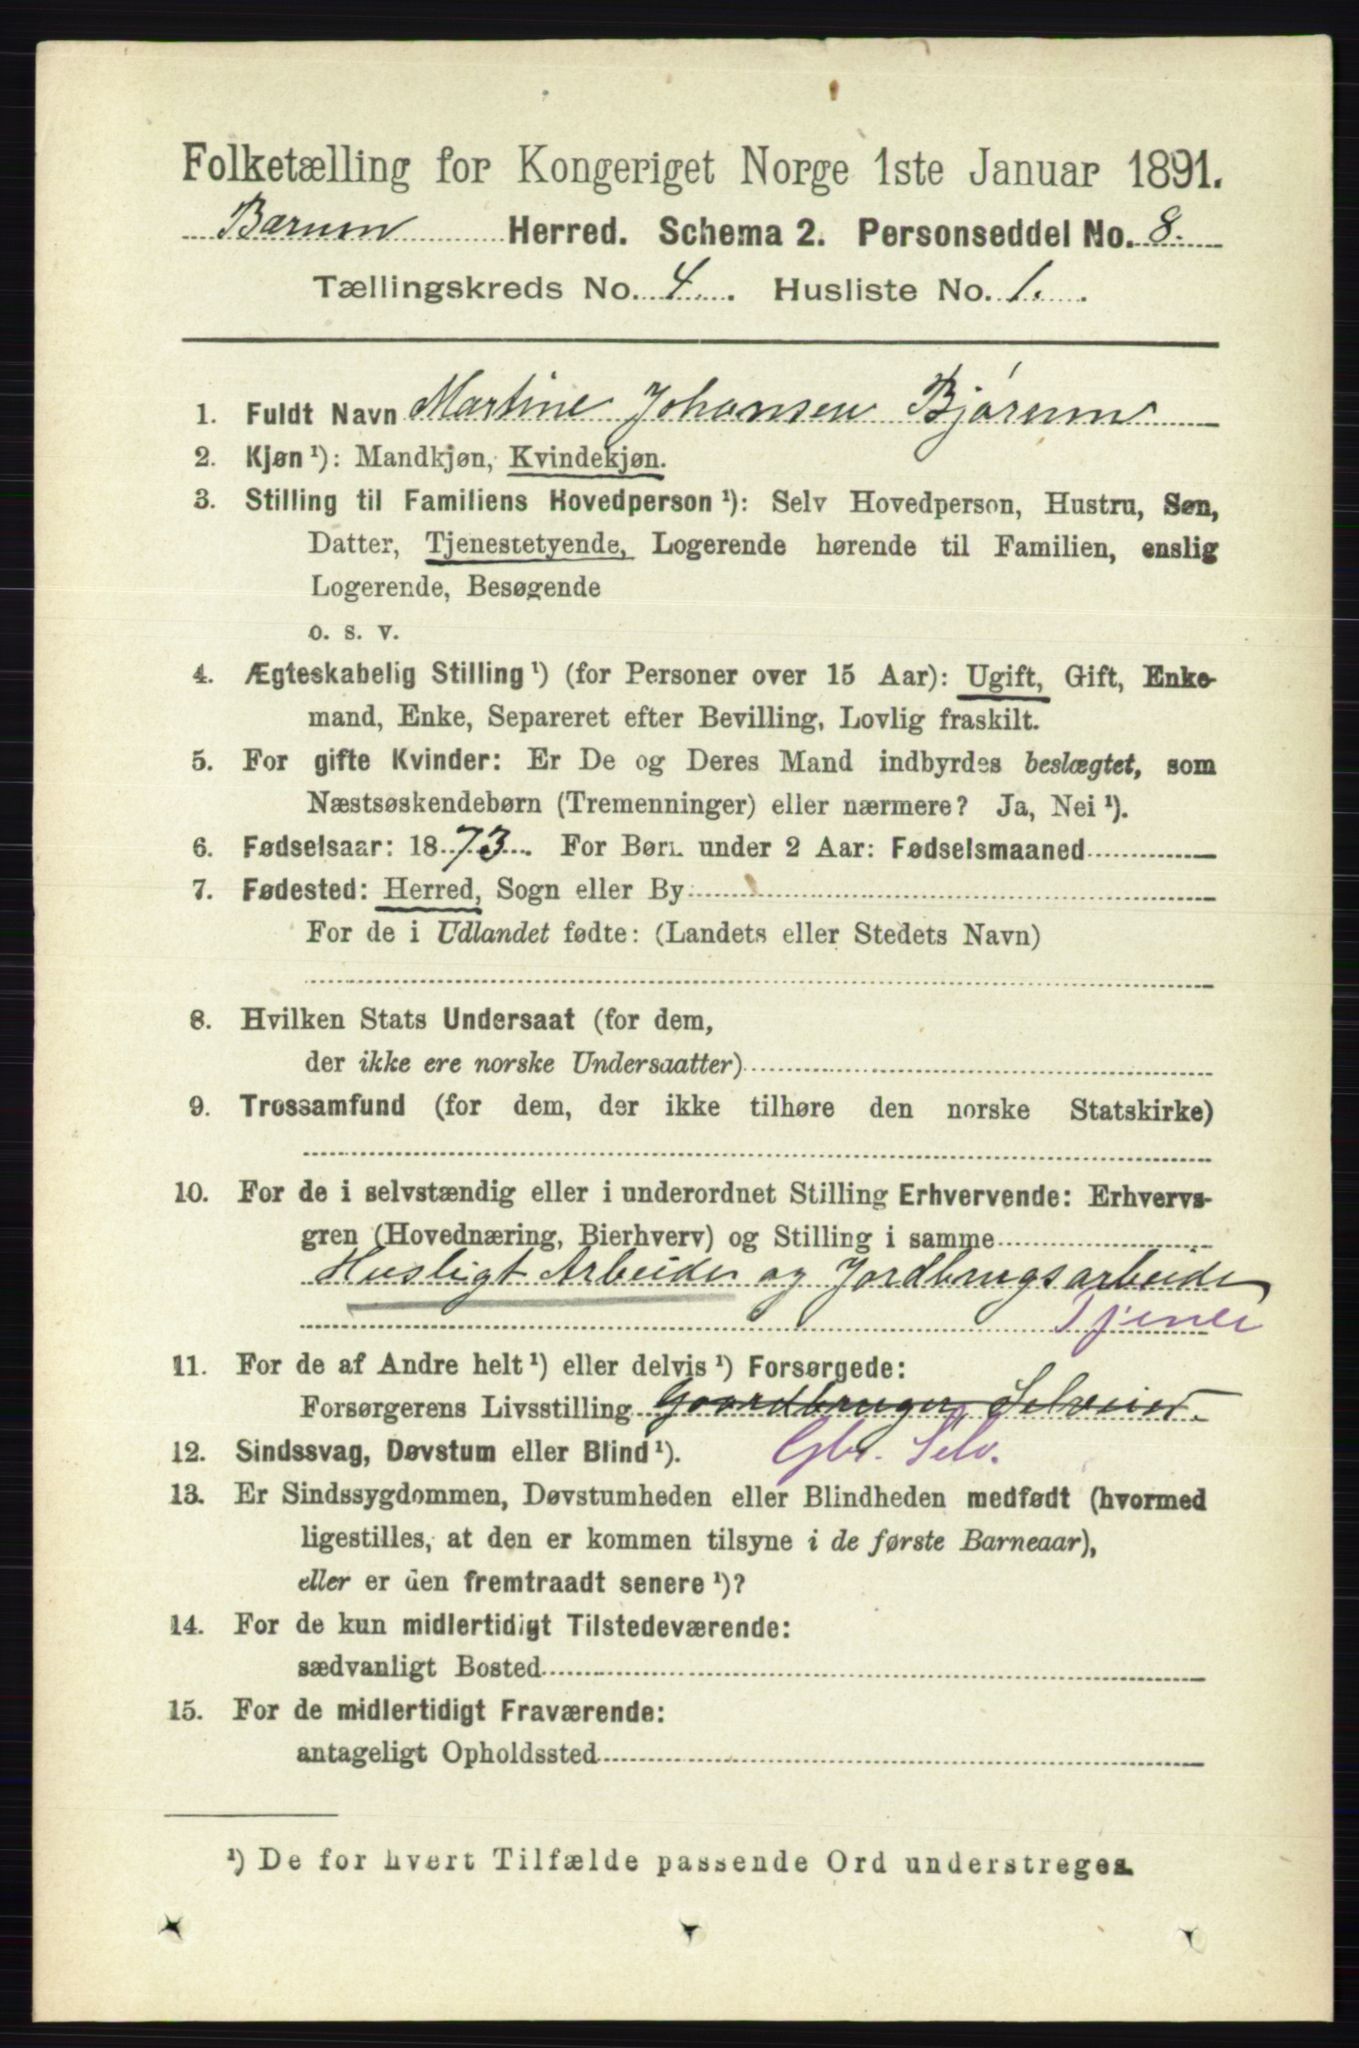 Folketælling for Kongeriget Norge 1ste Januar 1891.
Bærum Herred. Schema 2. Personseddel No. 8.
Tællingskreds No. 4. Husliste No. 1.
1. Fuldt Navn Martine Johansen Bjórum
2. Kjøn ¹): Mandkjøn, Kvindekjøn.
3. Stilling til Familiens Hovedperson ¹): Selv Hovedperson, Hustru, Søn,
Datter, Tjenestetyende, Logerende hørende til Familien, enslig
Logerende, Besøgende
o. s. v.
4. Ægteskabelig Stilling ¹) (for Personer over 15 Aar): Ugift, Gift, Enke-
mand, Enke, Separeret efter Bevilling, Lovlig fraskilt.
5. For gifte Kvinder: Er De og Deres Mand indbyrdes beslægtet, som
Næstsøskendebørn (Tremenninger) eller nærmere? Ja, Nei ¹).
6. Fødselsaar: 1873. For Børn under 2 Aar: Fødselsmaaned
7. Fødested: Herred, Sogn eller By
For de i Udlandet fødte: (Landets eller Stedets Navn)
8. Hvilken Stats Undersaat (for dem,
der ikke ere norske Undersaatter)
9. Trossamfund (for dem, der ikke tilhøre den norske Statskirke)
10. For de i selvstændig eller i underordnet Stilling Erhvervende: Erhvervs-
gren (Hovednæring, Bierhverv) og Stilling i samme
Husligt Arbeide og Jordbrugsarbeide
Tjener
11. For de af Andre helt ¹) eller delvis ¹) Forsørgede:
Forsørgerens Livsstilling Gaardbruger Selveier
12. Sindssvag, Døvstum eller Blind ¹). Gbr. Selv.
13. Er Sindssygdommen, Døvstumheden eller Blindheden medfødt (hvormed
ligestilles, at den er kommen tilsyne i de første Barneaar),
eller er den fremtraadt senere ¹)?
14. For de kun midlertidigt Tilstedeværende:
sædvanligt Bosted
15. For de midlertidigt Fraværende:
antageligt Opholdssted
¹) De for hvert Tilfælde passende Ord understreges.